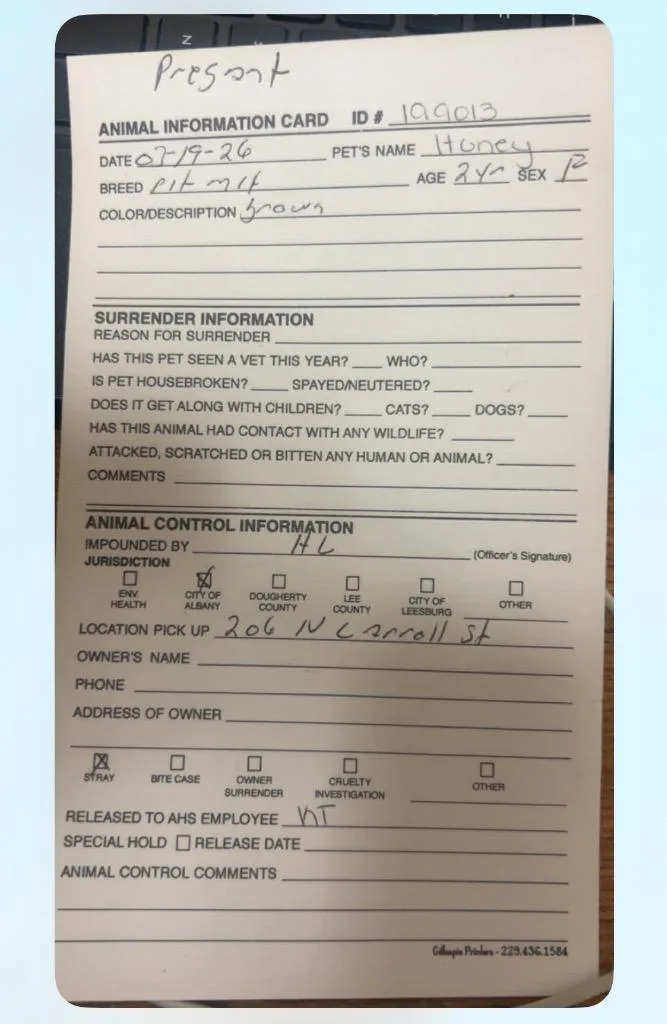 Z
Pregant
ANIMAL INFORMATION CARD ID # 199013
DATE 07-19-26 PET'S NAME Honey
BREED pit mix AGE 2yr SEX F
COLOR/DESCRIPTION brown
SURRENDER INFORMATION
REASON FOR SURRENDER
HAS THIS PET SEEN A VET THIS YEAR? WHO?
IS PET HOUSEBROKEN? SPAYED/NEUTERED?
DOES IT GET ALONG WITH CHILDREN? CATS? DOGS?
HAS THIS ANIMAL HAD CONTACT WITH ANY WILDLIFE?
ATTACKED, SCRATCHED OR BITTEN ANY HUMAN OR ANIMAL?
COMMENTS
ANIMAL CONTROL INFORMATION
IMPOUNDED BY HL (Officer's Signature)
JURISDICTION
ENV. HEALTH
CITY OF ALBANY
DOUGHERTY COUNTY
LEE COUNTY
CITY OF LEESBURG
OTHER
LOCATION PICK UP 206 N Carroll St
OWNER'S NAME
PHONE
ADDRESS OF OWNER
STRAY
BITE CASE
OWNER SURRENDER
CRUELTY INVESTIGATION
OTHER
RELEASED TO AHS EMPLOYEE KT
SPECIAL HOLD RELEASE DATE
ANIMAL CONTROL COMMENTS
Gillespie Printers - 229.436.1584